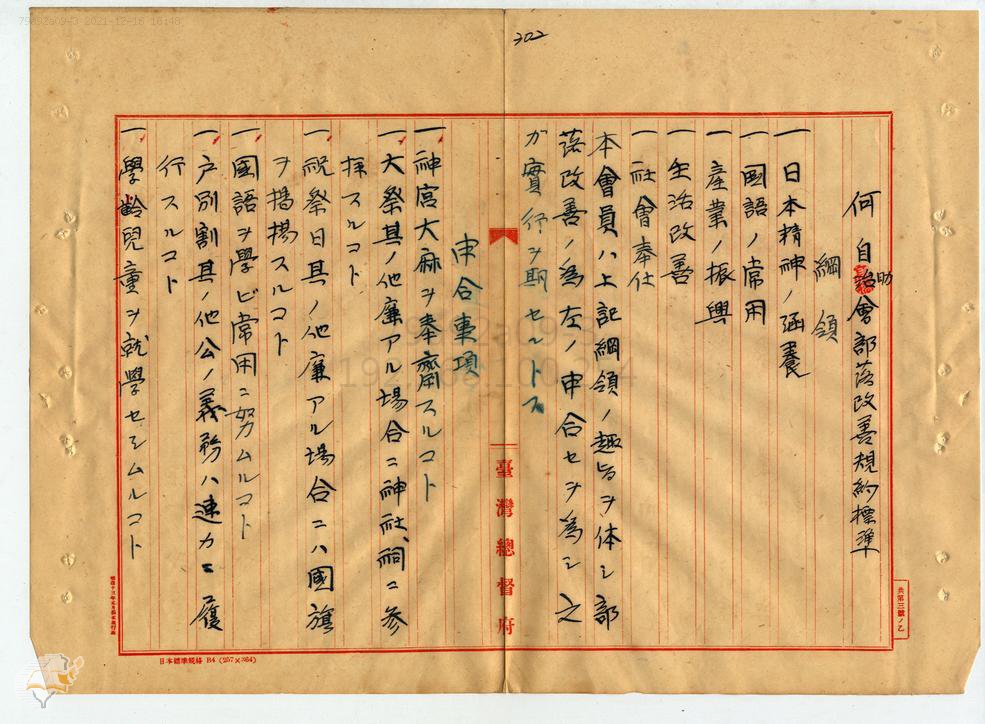 79a92a09-3 2021-12-16 16:48
302
何自助會部落改善規約標準
綱領
一 日本精神ノ涵養
一 國語ノ常用
一 產業ノ振興
一 生活改善
一 社會奉仕
本會員ハ上記綱領ノ趣旨ヲ体シ部
落改善ノ為左ノ申合セヲ為シ之
ガ實行ヲ期セントス
申合事項
一、神宮大麻ヲ奉齋スルコト
一、大祭其ノ他廉アル場合ニ神社、祠ニ參
拝スルコト
一、祝祭日其ノ他廉アル場合ニハ國旗
ヲ揭揚スルコト
一、國語ヲ學ビ常用ニ努ムルコト
一、戶別割其ノ他公ノ義務ハ速カニ履
行スルコト
一、學齡兒童ヲ就學セシムルコト
臺灣總督府
共第三號ノ乙
日本標準規格 B4 (257×364)